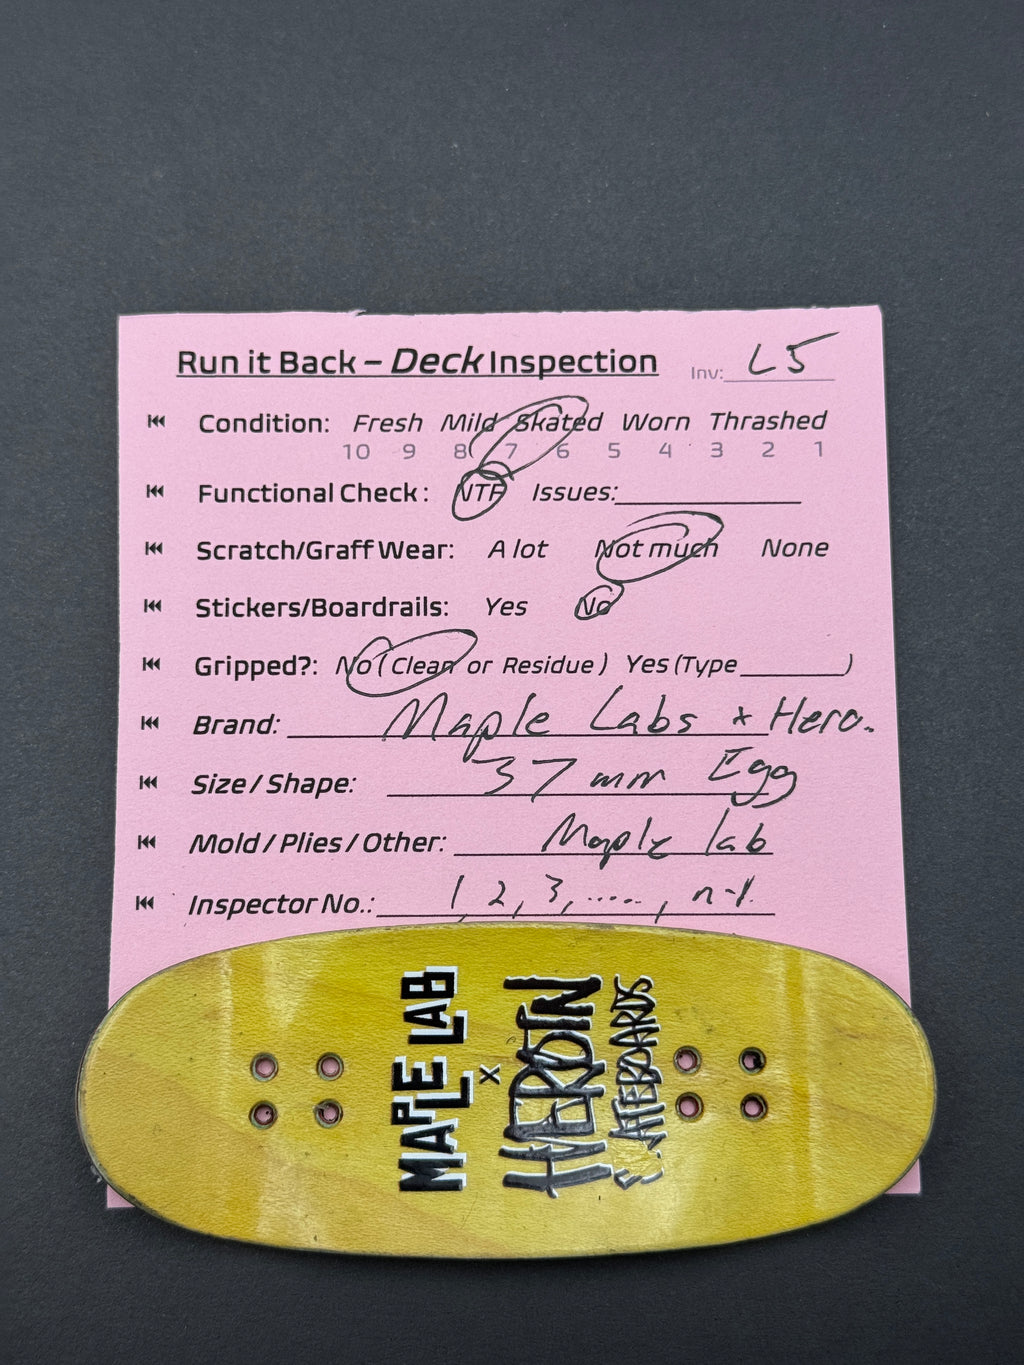 Run it Back – Deck Inspection Inv: L5
Condition: Fresh Mild Skated Worn Thrashed
10 9 8 7 6 5 4 3 2 1
Functional Check: NTF Issues:
Scratch/Graff Wear: A lot Not much None
Stickers/Boardrails: Yes No
Gripped?: No (Clean or Residue) Yes (Type )
Brand: Maple Labs x Hero.
Size / Shape: 37 mm Egg
Mold / Plies / Other: Maple lab
Inspector No.: 1, 2, 3, ....., n-1.
MAPLE LAB
x
HEROIN
SKATEBOARDS